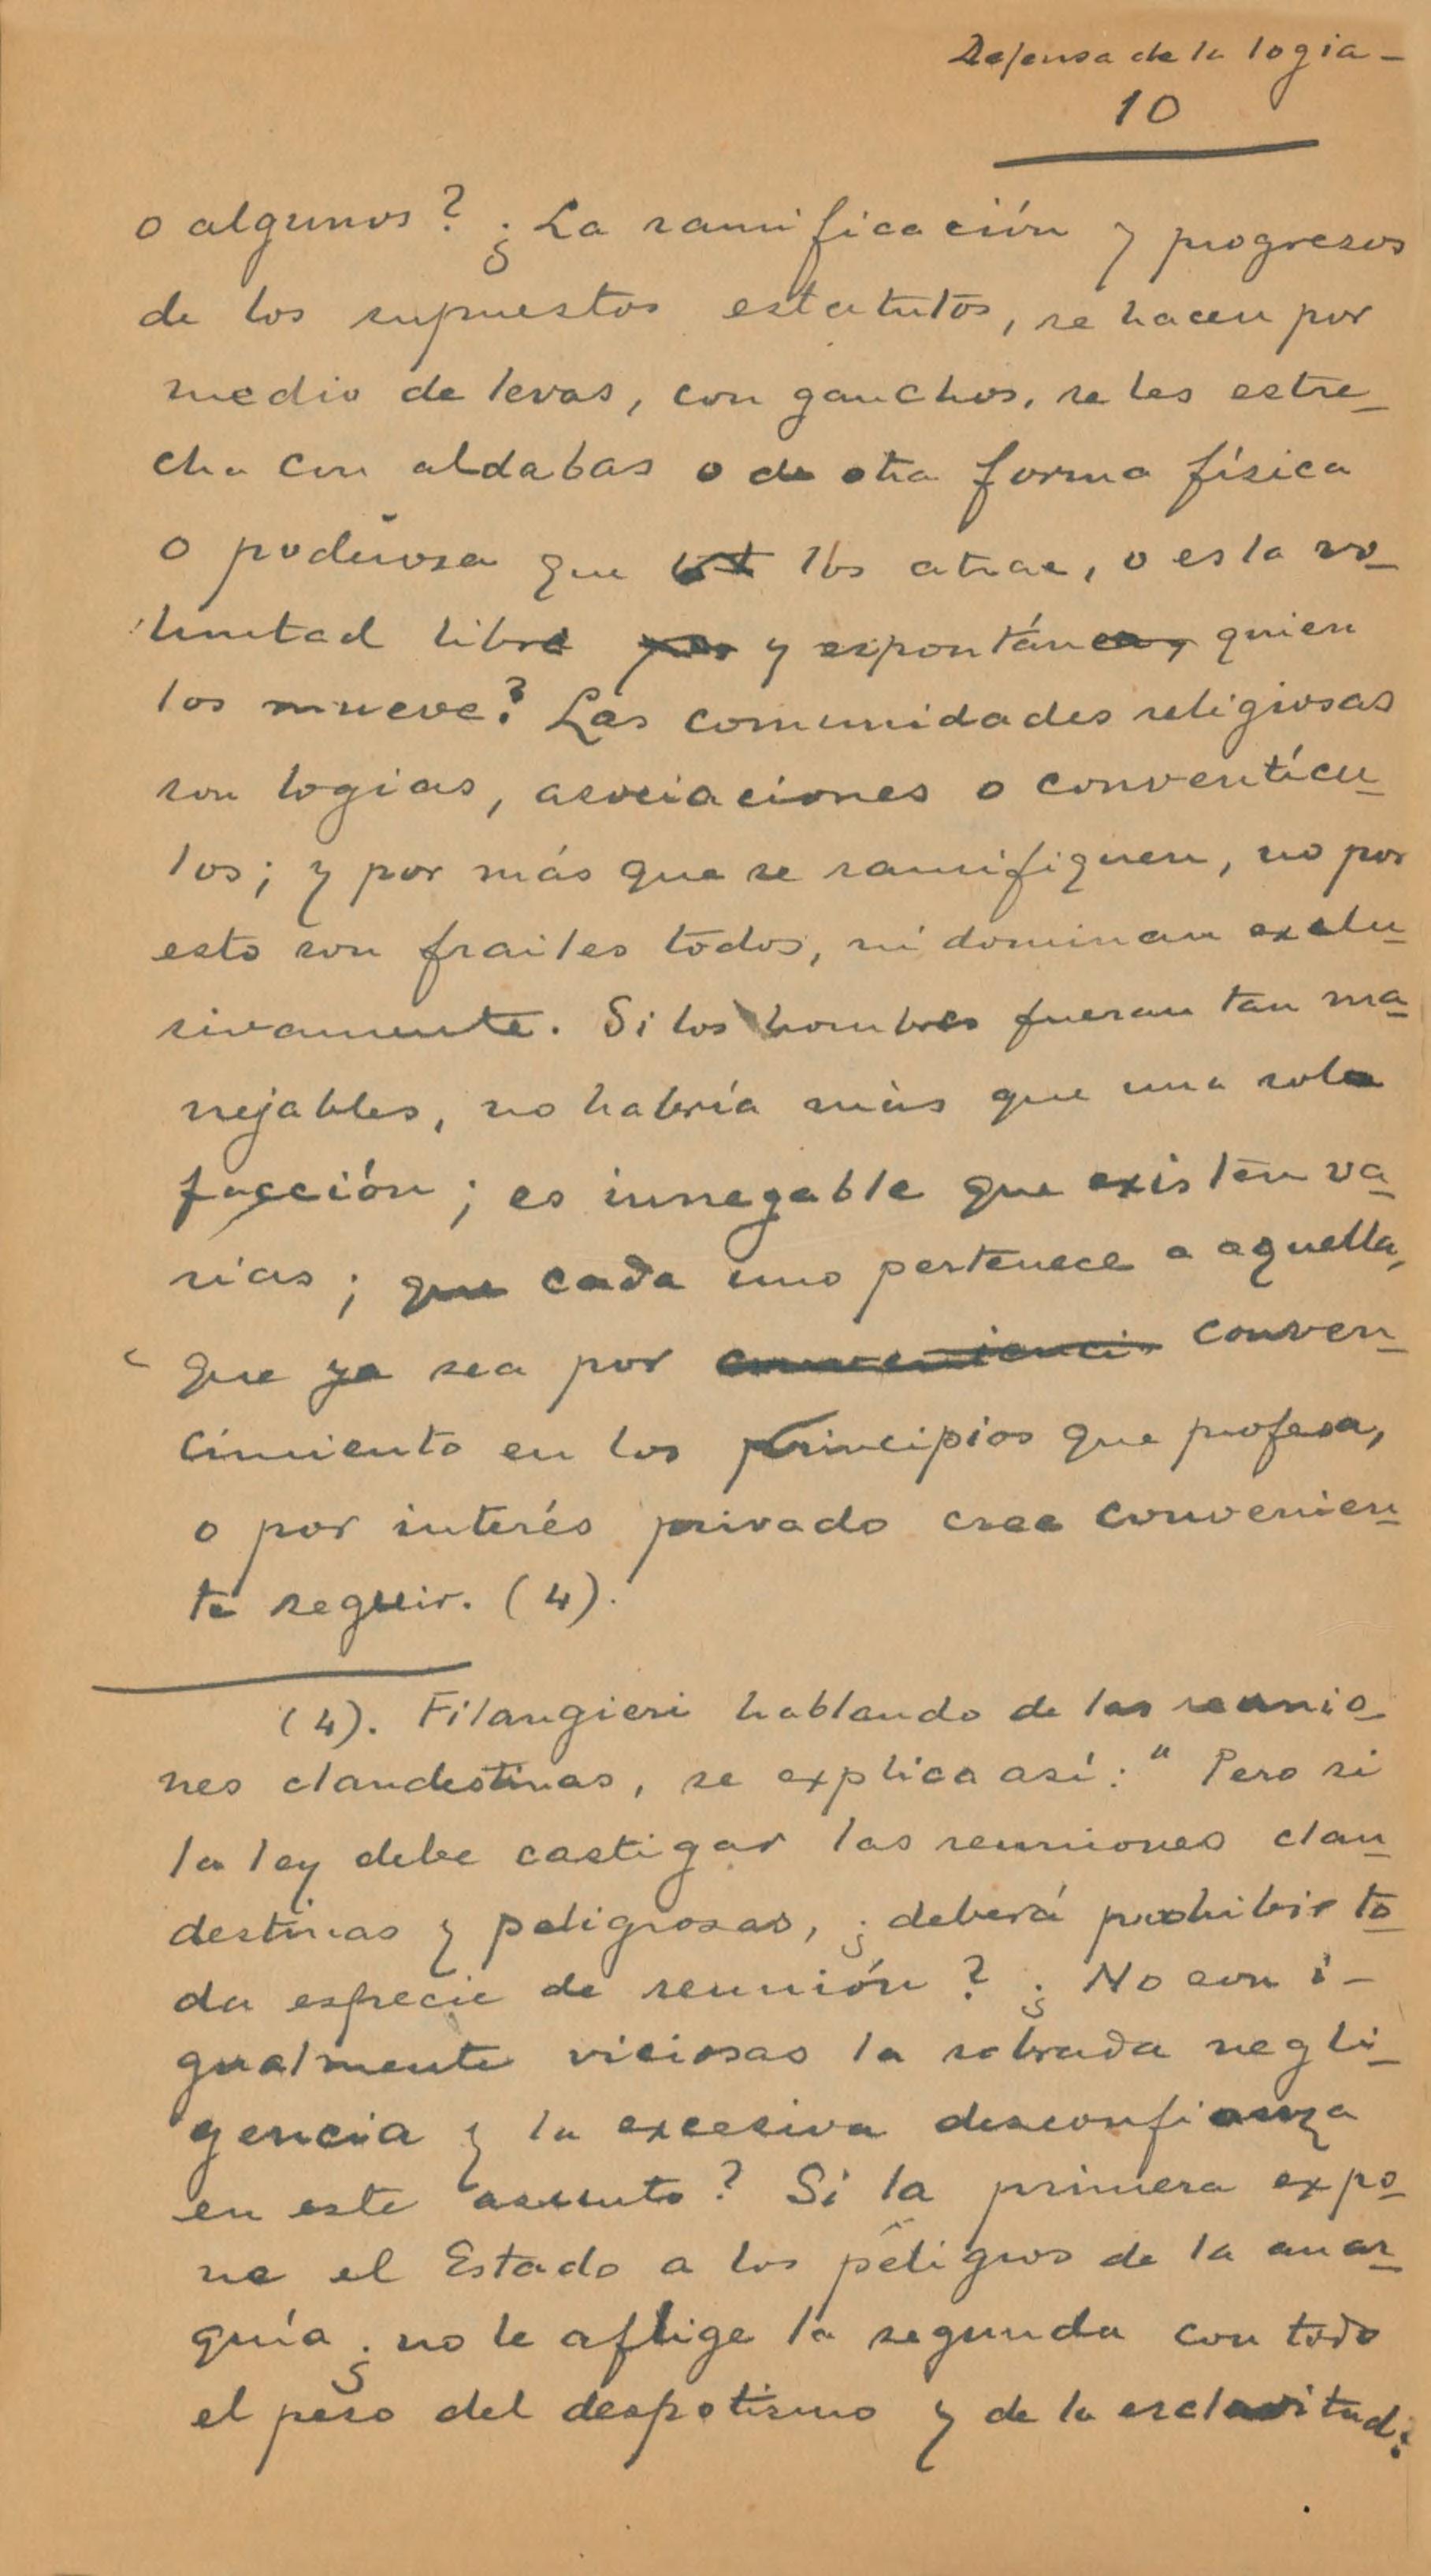 Defensa de la logia -
10
o algunos? ¿La ramificación y progresos
de los supuestos estatutos, se hacen por
medio de levas, con ganchos, se les estre-
cha con aldabas o de otra forma física
o poderosa que los atrae, o es la vo-
luntad libre y espontánea, quien
los mueve? Las comunidades religiosas
son logias, asociaciones o conventícu-
los; y por más que se ramifiquen, no por
esto son frailes todos, ni dominan exclu-
sivamente. Si los hombres fueran tan ma-
nejables, no habría más que una sola
facción; es innegable que existen va-
rias; que cada uno pertenece a aquella,
que ya sea por conveniencia conven-
cimiento en los principios que profesa,
o por interés privado cree convenien-
te seguir. (4).
(4). Filangieri hablando de las reunio-
nes clandestinas, se explica así: " Pero si
la ley debe castigar las reuniones clan-
destinas y peligrosas, ¿deberá prohibir to-
da especie de reunión? ¿No son i-
gualmente viciosas la sobrada negli-
gencia y la excesiva desconfianza
en este asunto? Si la primera expo-
ne el Estado a los peligros de la anar-
quía ¿no le aflige la segunda con todo
el peso del despotismo y de la esclavitud?